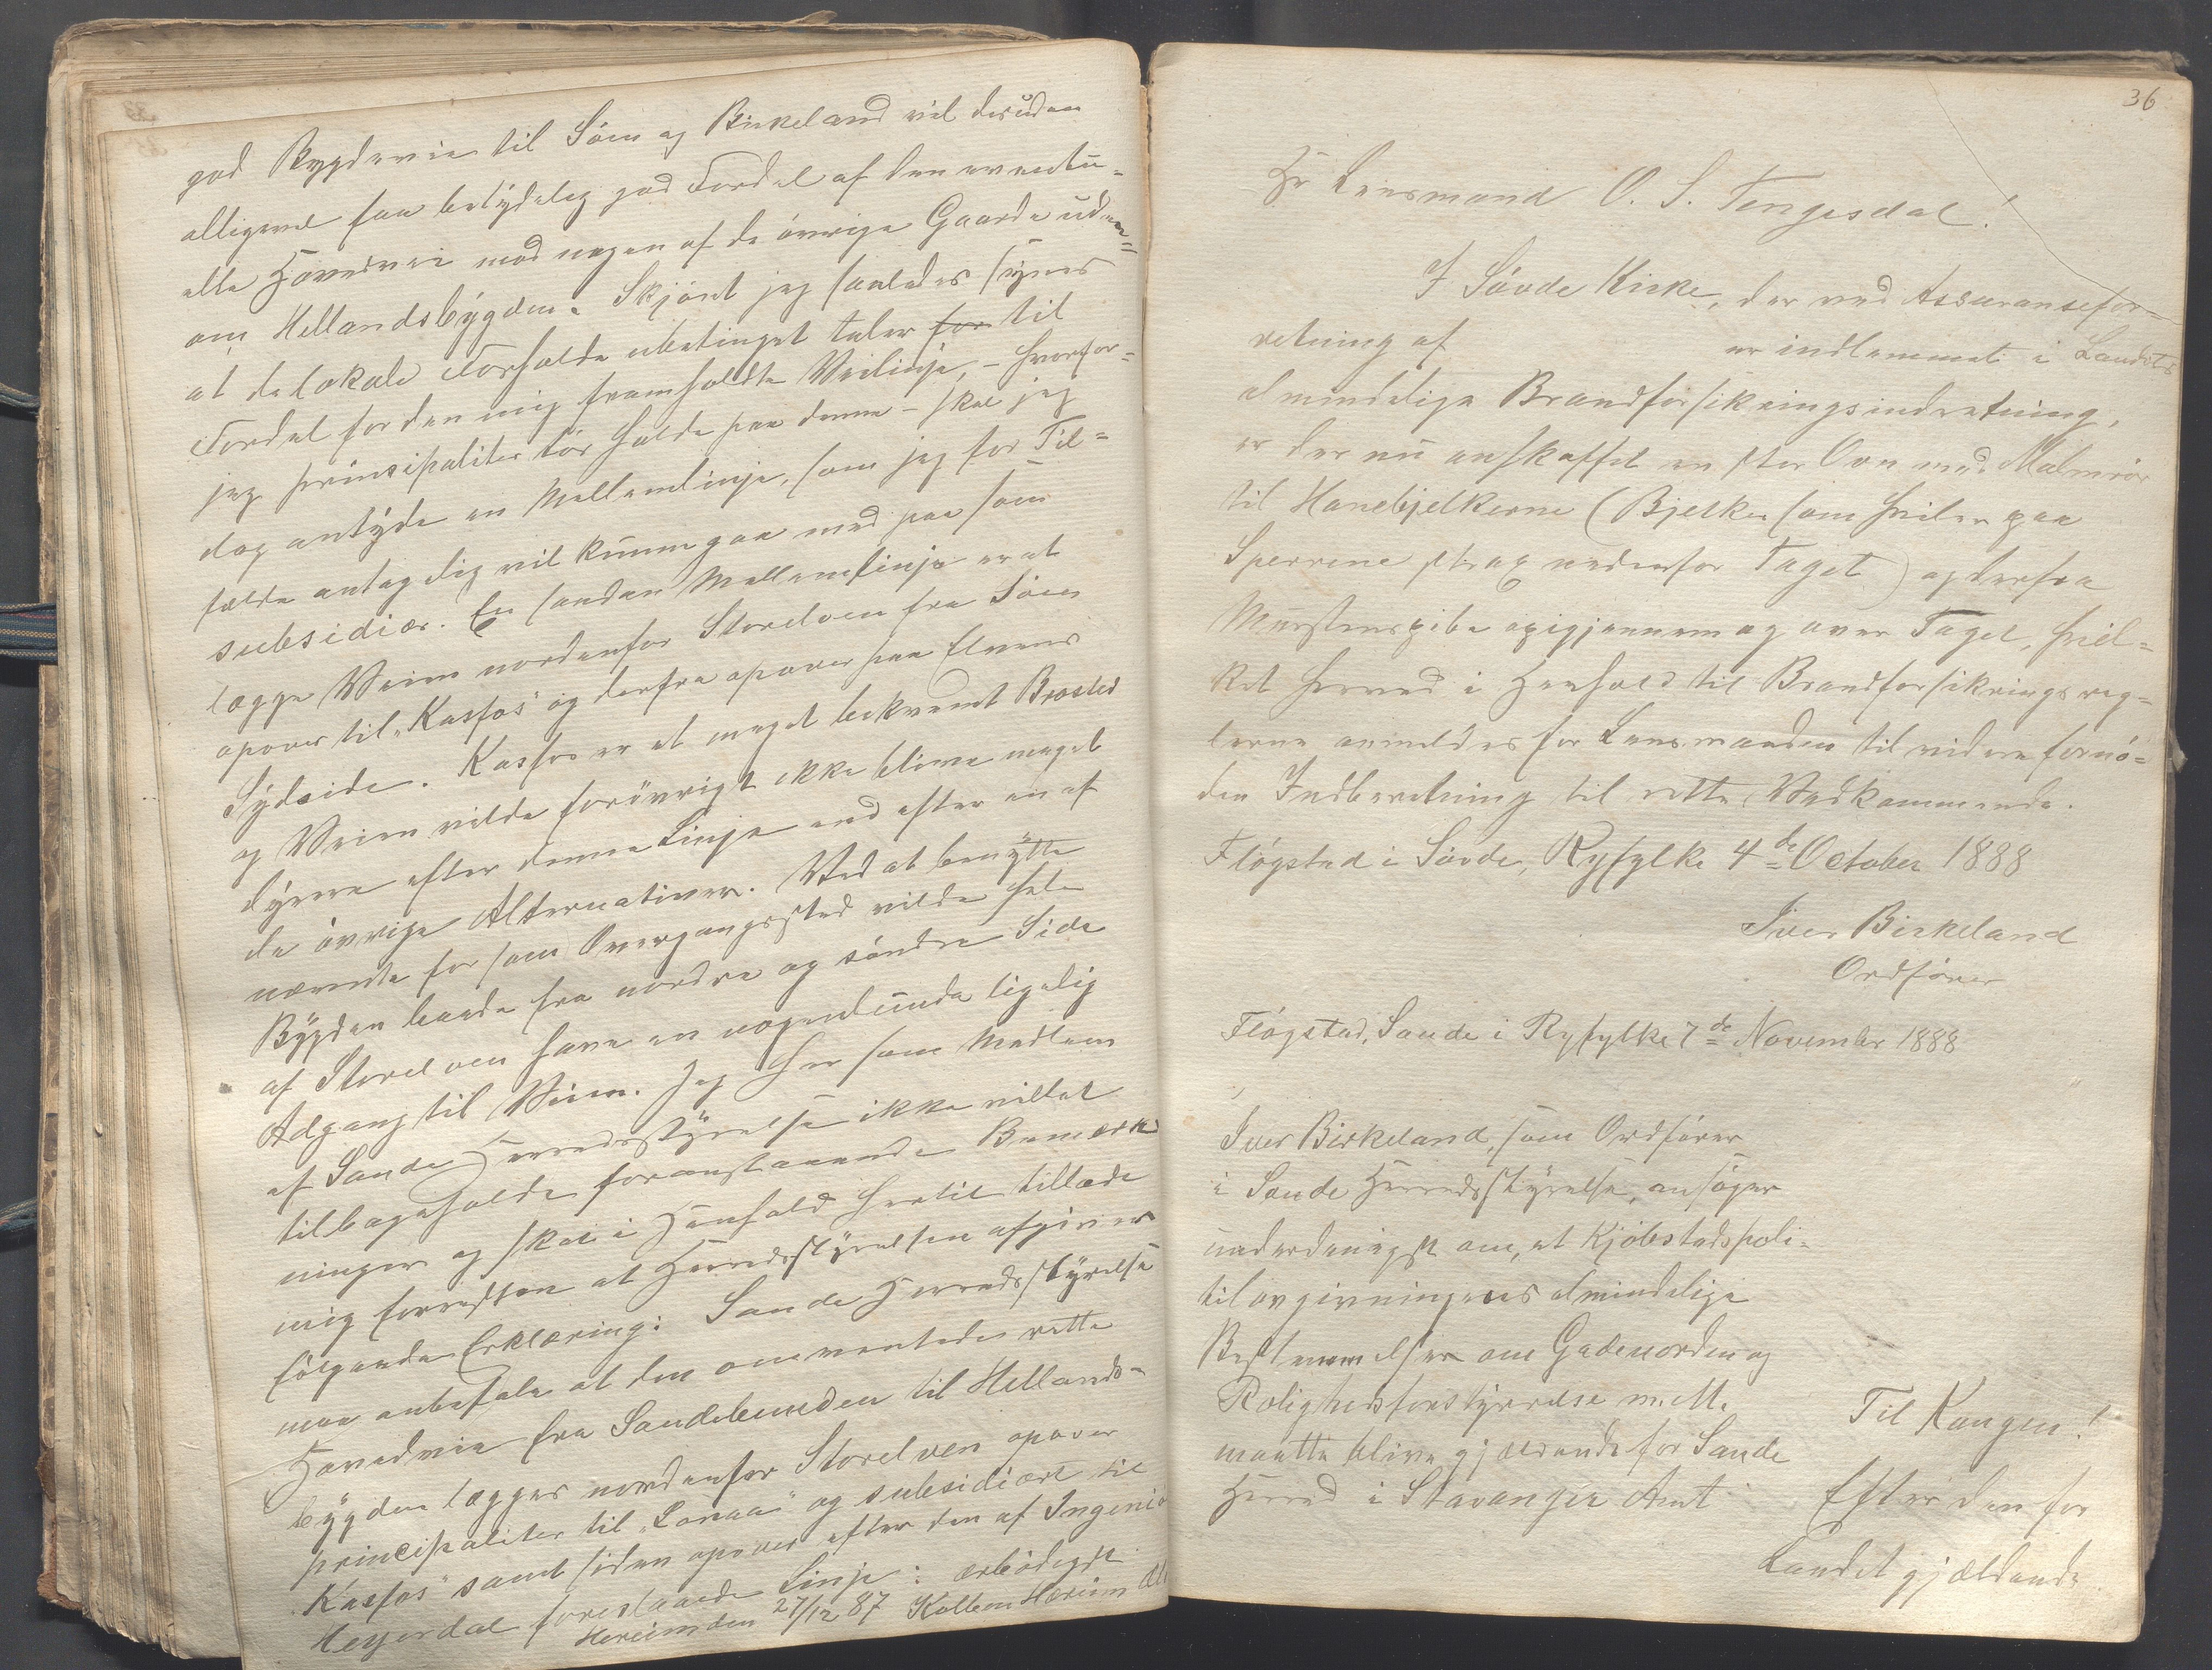 god Bygdevei til Söen og Birkeland vil desuden
alligevel faa betydelig god Fordel af den eventu-
elle Hovedvei mod nogen af de övrige Gaarde uden=
om Hellandsbygden. Skjönt jeg saaledes synes
at de lokale Forholde ubetinget taler for til
Fordel for den mig fremholdte Veilinje, – hvorfor=
jeg prinsipaliter tör holde paa denne – skal jeg
dog antyde en Mellemlinje, som jeg for Til=
fælde antagelig vil kunne gaa med paa som
subsidiær. En saadan Mellemlinje er at
lægge Veien nordenfor Storelven fra Söen
opover til "Kasfos" og derfra opover paa Elvens
Sydside. Kasfos er et meget bekvemt Brosted
og Veien vilde forövrigt ikke blive meget
dyrere efter denne Linje end efter en af
de övrige Alternativer. Ved at benytte
nævnte fos som Overgangssted vilde hele
Bygden baade fra nordre og söndre Side
af Storelven have en nogenlunde ligelig
Adgang til Veien. Jeg har som Medlem
af Sande Herredsstyrelse ikke villet
tilbageholde foranstaaende Bemærk
ninger og skal i Henhold hertil tillade
mig foreslaa at Herredsstyrelsen afgiver
fölgende Erklæring: Sande Herredsstyrelse
maa anbefale at den omventede rette
Hovedvei fra Sandebunden til Hellands-
bygden lægges nordenfor Storelven opover
principaliter til "Lonaa" og subsidiært til
Kasfos" samt siden opover efter den af Ingeniör
Heyerdal foreslaaede Linje: ærbödigst
Hereim den 27/12 87 Kolben Hereim

36
Hr Lensmand O. S. Tengesdal!
I Sövde Kirke, der ved Assuransefor-
retning af er indlemmet i Landets
almindelige Brandforsikringsindretning,
er der nu anskaffet en stor Ovn med Malmrör
til Hanebjelkerne (Bjelker som hviler paa
Sperrene strax nedenfor Taget) og derfra
Murstenspibe op igjennem og over Taget, hvil=
ket herved i Henhold til Brandforsikringsreg=
lerne anmeldes for Lensmanden til videre fornö=
den Indberetning til rette Vedkommende.
Flögstad i Sövde, Ryfylke 4de October 1888
Iver Birkeland
Ordförer
Flögstad, Sande i Ryfylke 7de November 1888
Iver Birkeland, som Ordförer
i Sande Herredsstyrelse, ansöger
underdanigst om, at Kjöbstadspoli-
tilovgivningens almindelige
Bestemmelser om Gadeuorden og
Rolighedsforstyrrelse m. M.
maatte blive gjældende for Sande
Herred i Stavanger Amt
Til Kongen!
Efter den for
Landet gjældende